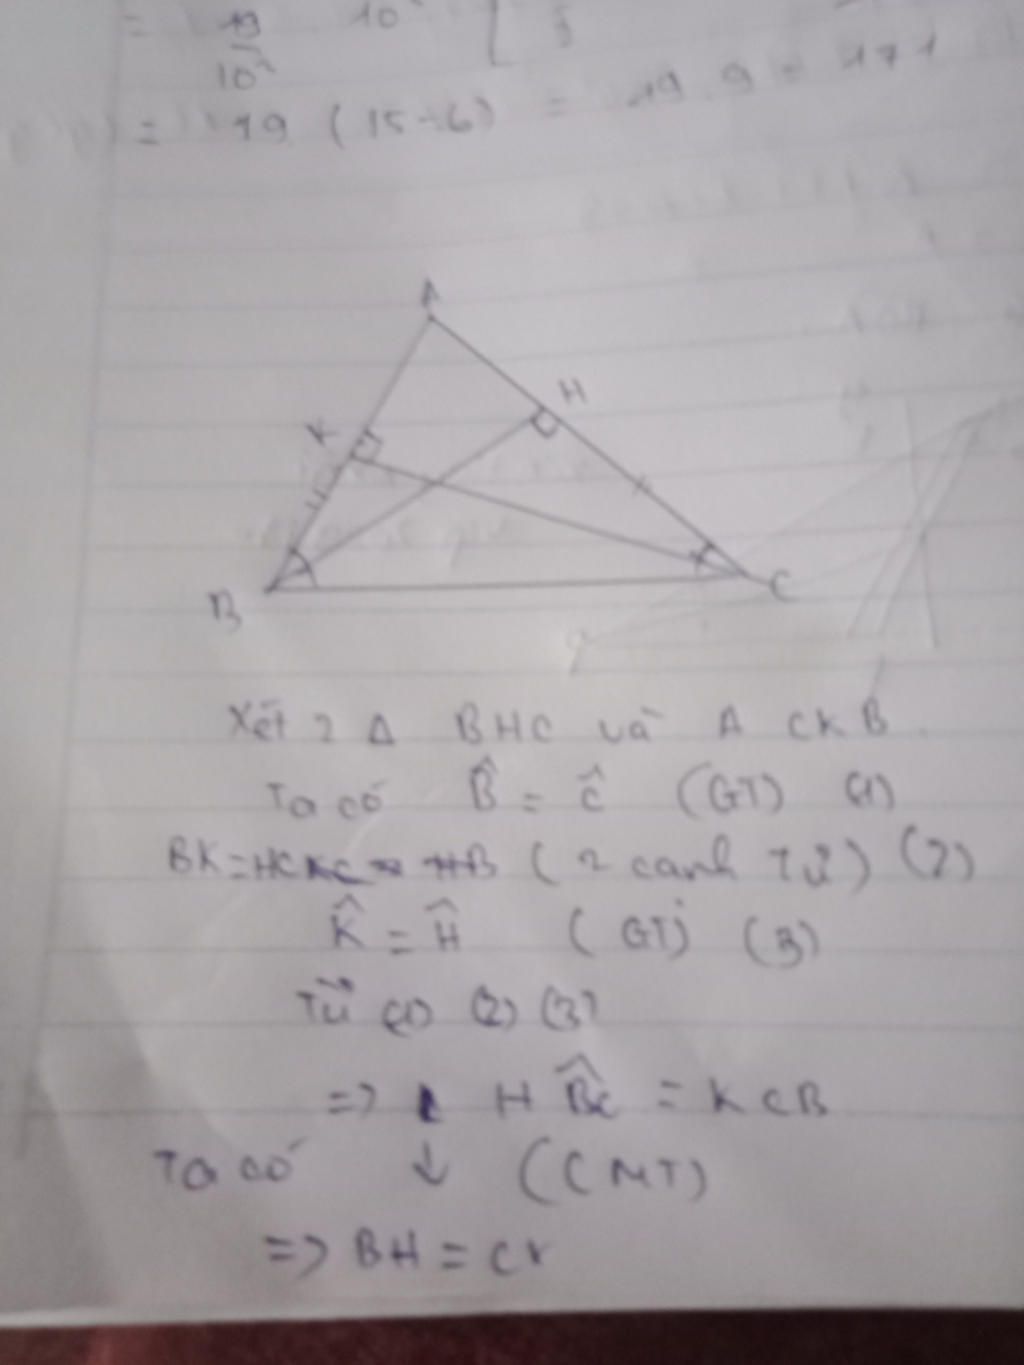 = 19 10
10²
= 19 (15-6) = 19.9 = 171
A
H
K
B
C
Xét 2 Δ BHC và Δ CKB
Ta có B̂ = Ĉ (GT) (1)
BK=HC (2 cạnh Tứ) (2)
K̂ = Ĥ (GT) (3)
Từ (1) (2) (3)
=> HB̂C = KCB
Ta có ↓ (CMT)
=> BH = CK